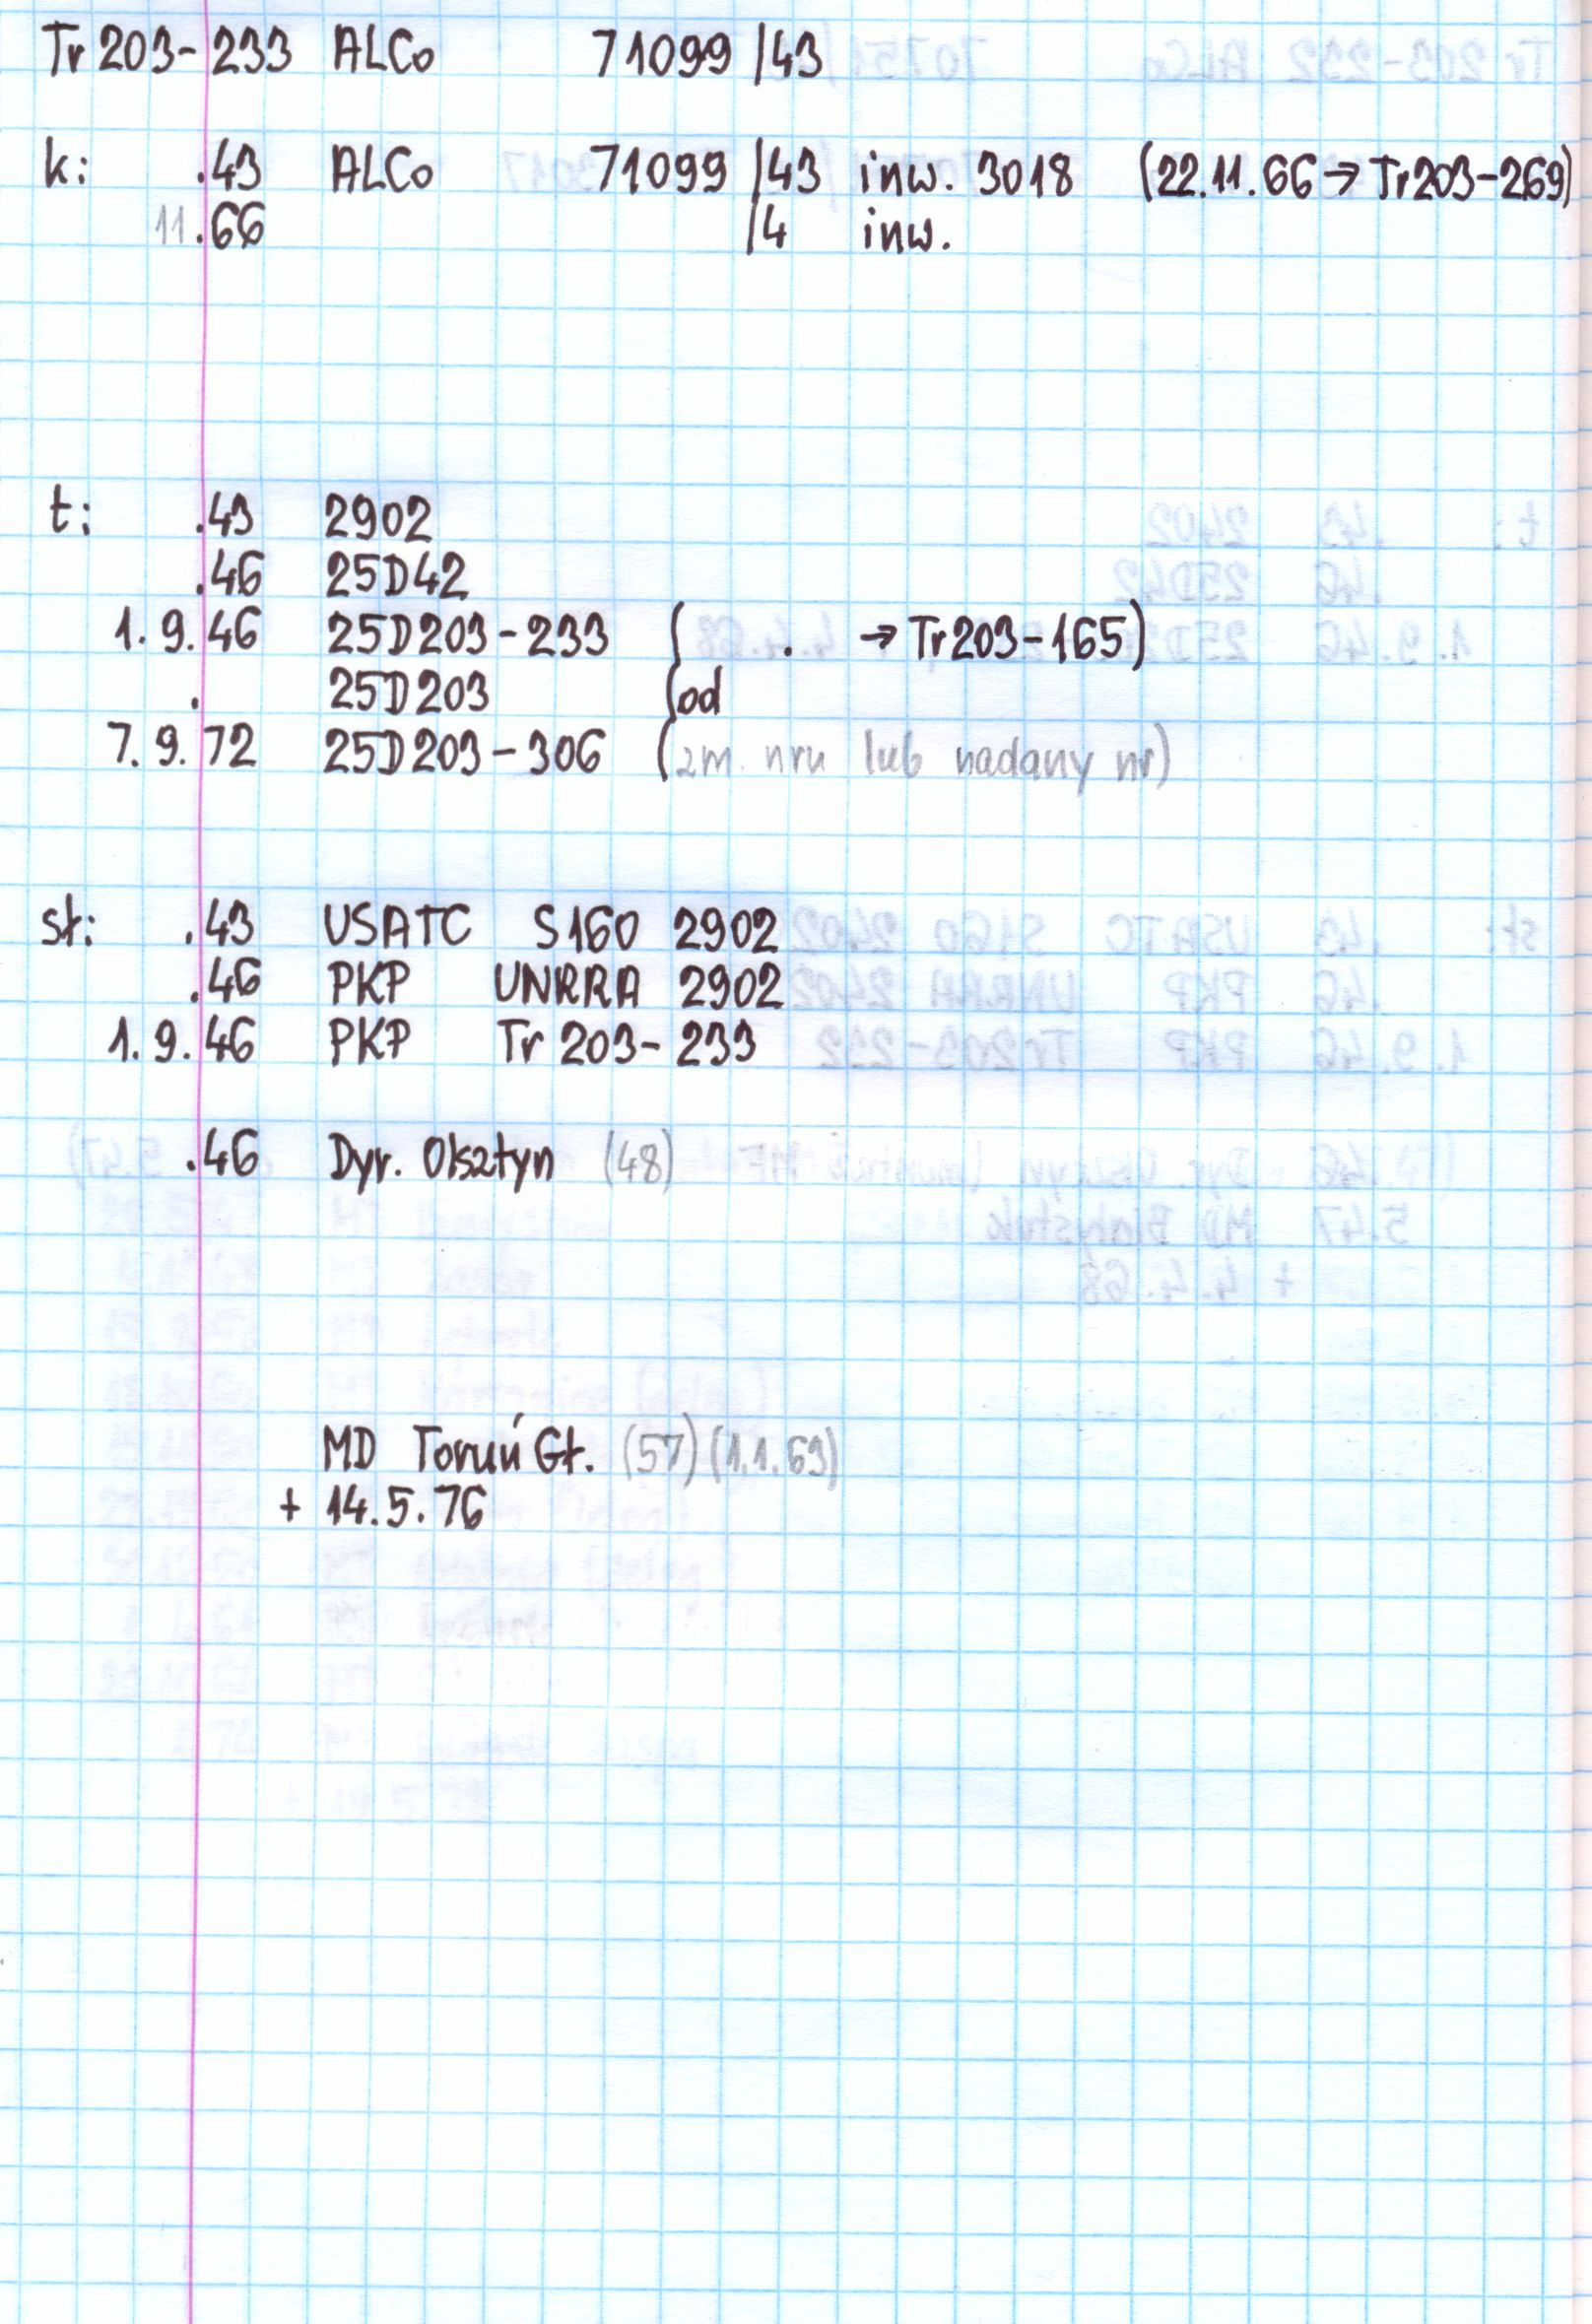 Tr 203-233 ALCo 71099 /43
k: .43 ALCo 71099 /43 inw. 3018 (22.11.66 → Tr203-269)
11.66 /4 inw.
t: .43 2902
.46 25D42
1. 9. 46 25D203-233 ( . → Tr203-165)
. 25D203 (od
7. 9. 72 25D203-306 (zm. nru lub nadany nr)
st: .43 USATC S160 2902
.46 PKP UNRRA 2902
1. 9. 46 PKP Tr 203-233
.46 Dyr. Olsztyn (48)
MD Toruń Gł. (57) (1.1.63)
+ 14.5.76